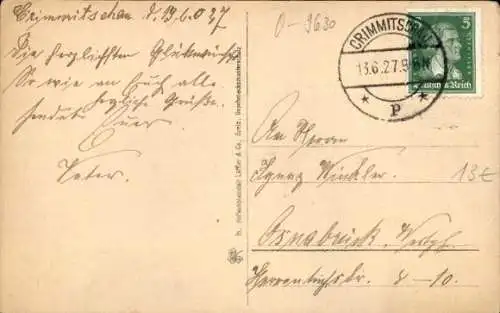 Crimmitschau d. 13.6.27
Die herzlichsten Glückwünsche
Sowie an Euch alle
herzliche Grüße.
sendet Euer
Vater.
O-9630
CRIMMITSCHAU
13.6.27.5-6N
* P *
5
Deutsches Reich
An Herrn
Ignaz Winkler.
13€
Osnabrück. Westph.
Herrenteichsstr. 8-10.